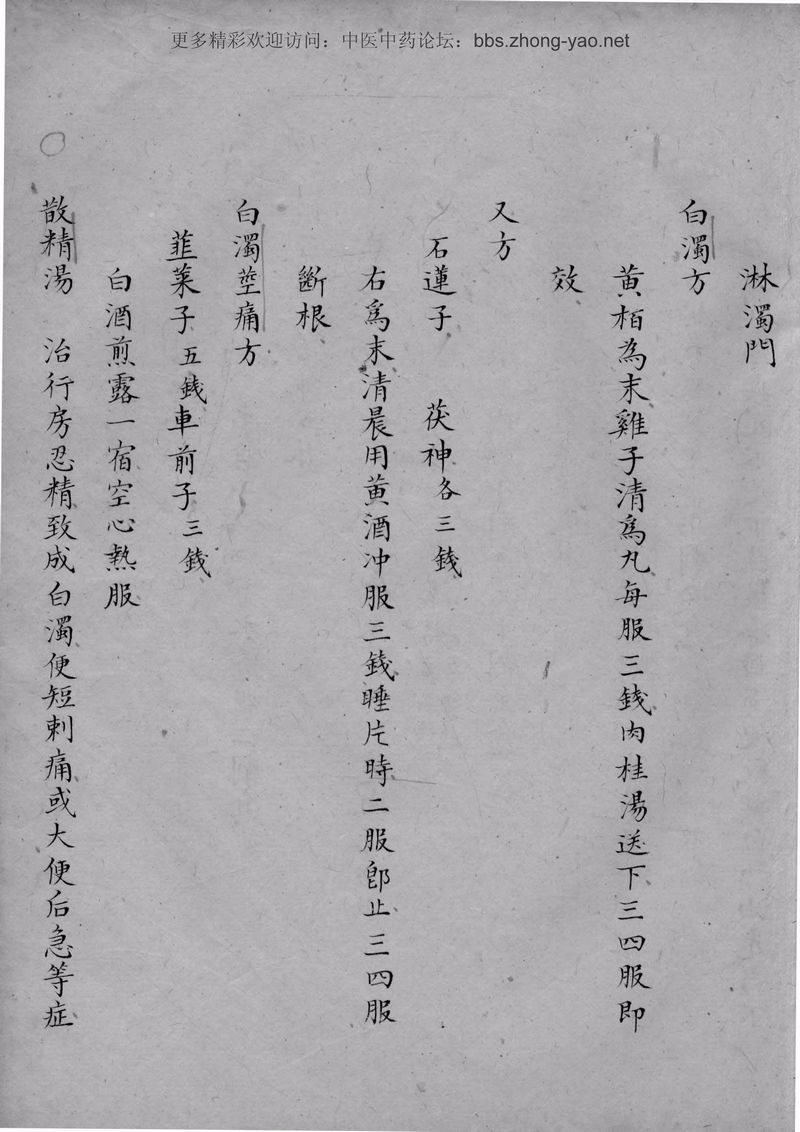 更多精彩欢迎访问：中医中药论坛：bbs.zhong-yao.net
淋濁門
白濁方
黄栢為末雞子清爲丸每服三錢肉桂湯送下三四服即
效
又方
石蓮子 茯神各三錢
右爲末清晨用黄酒冲服三錢睡片時二服卽止三四服
斷根
白濁莖痛方
韮菜子五錢車前子三錢
白酒煎露一宿空心熱服
散精湯 治行房忍精致成白濁便短刺痛或大便后急等症